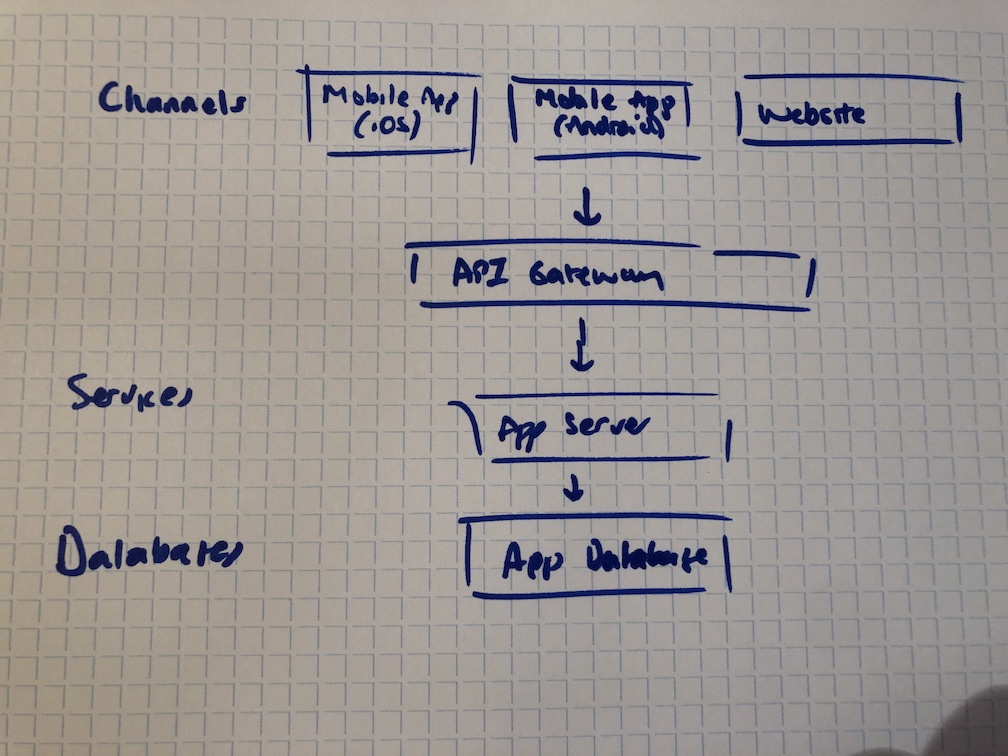 Channels
Mobile App
(iOS)
Mobile App
(Android)
Website
API Gateway
Services
App Server
Databases
App Database